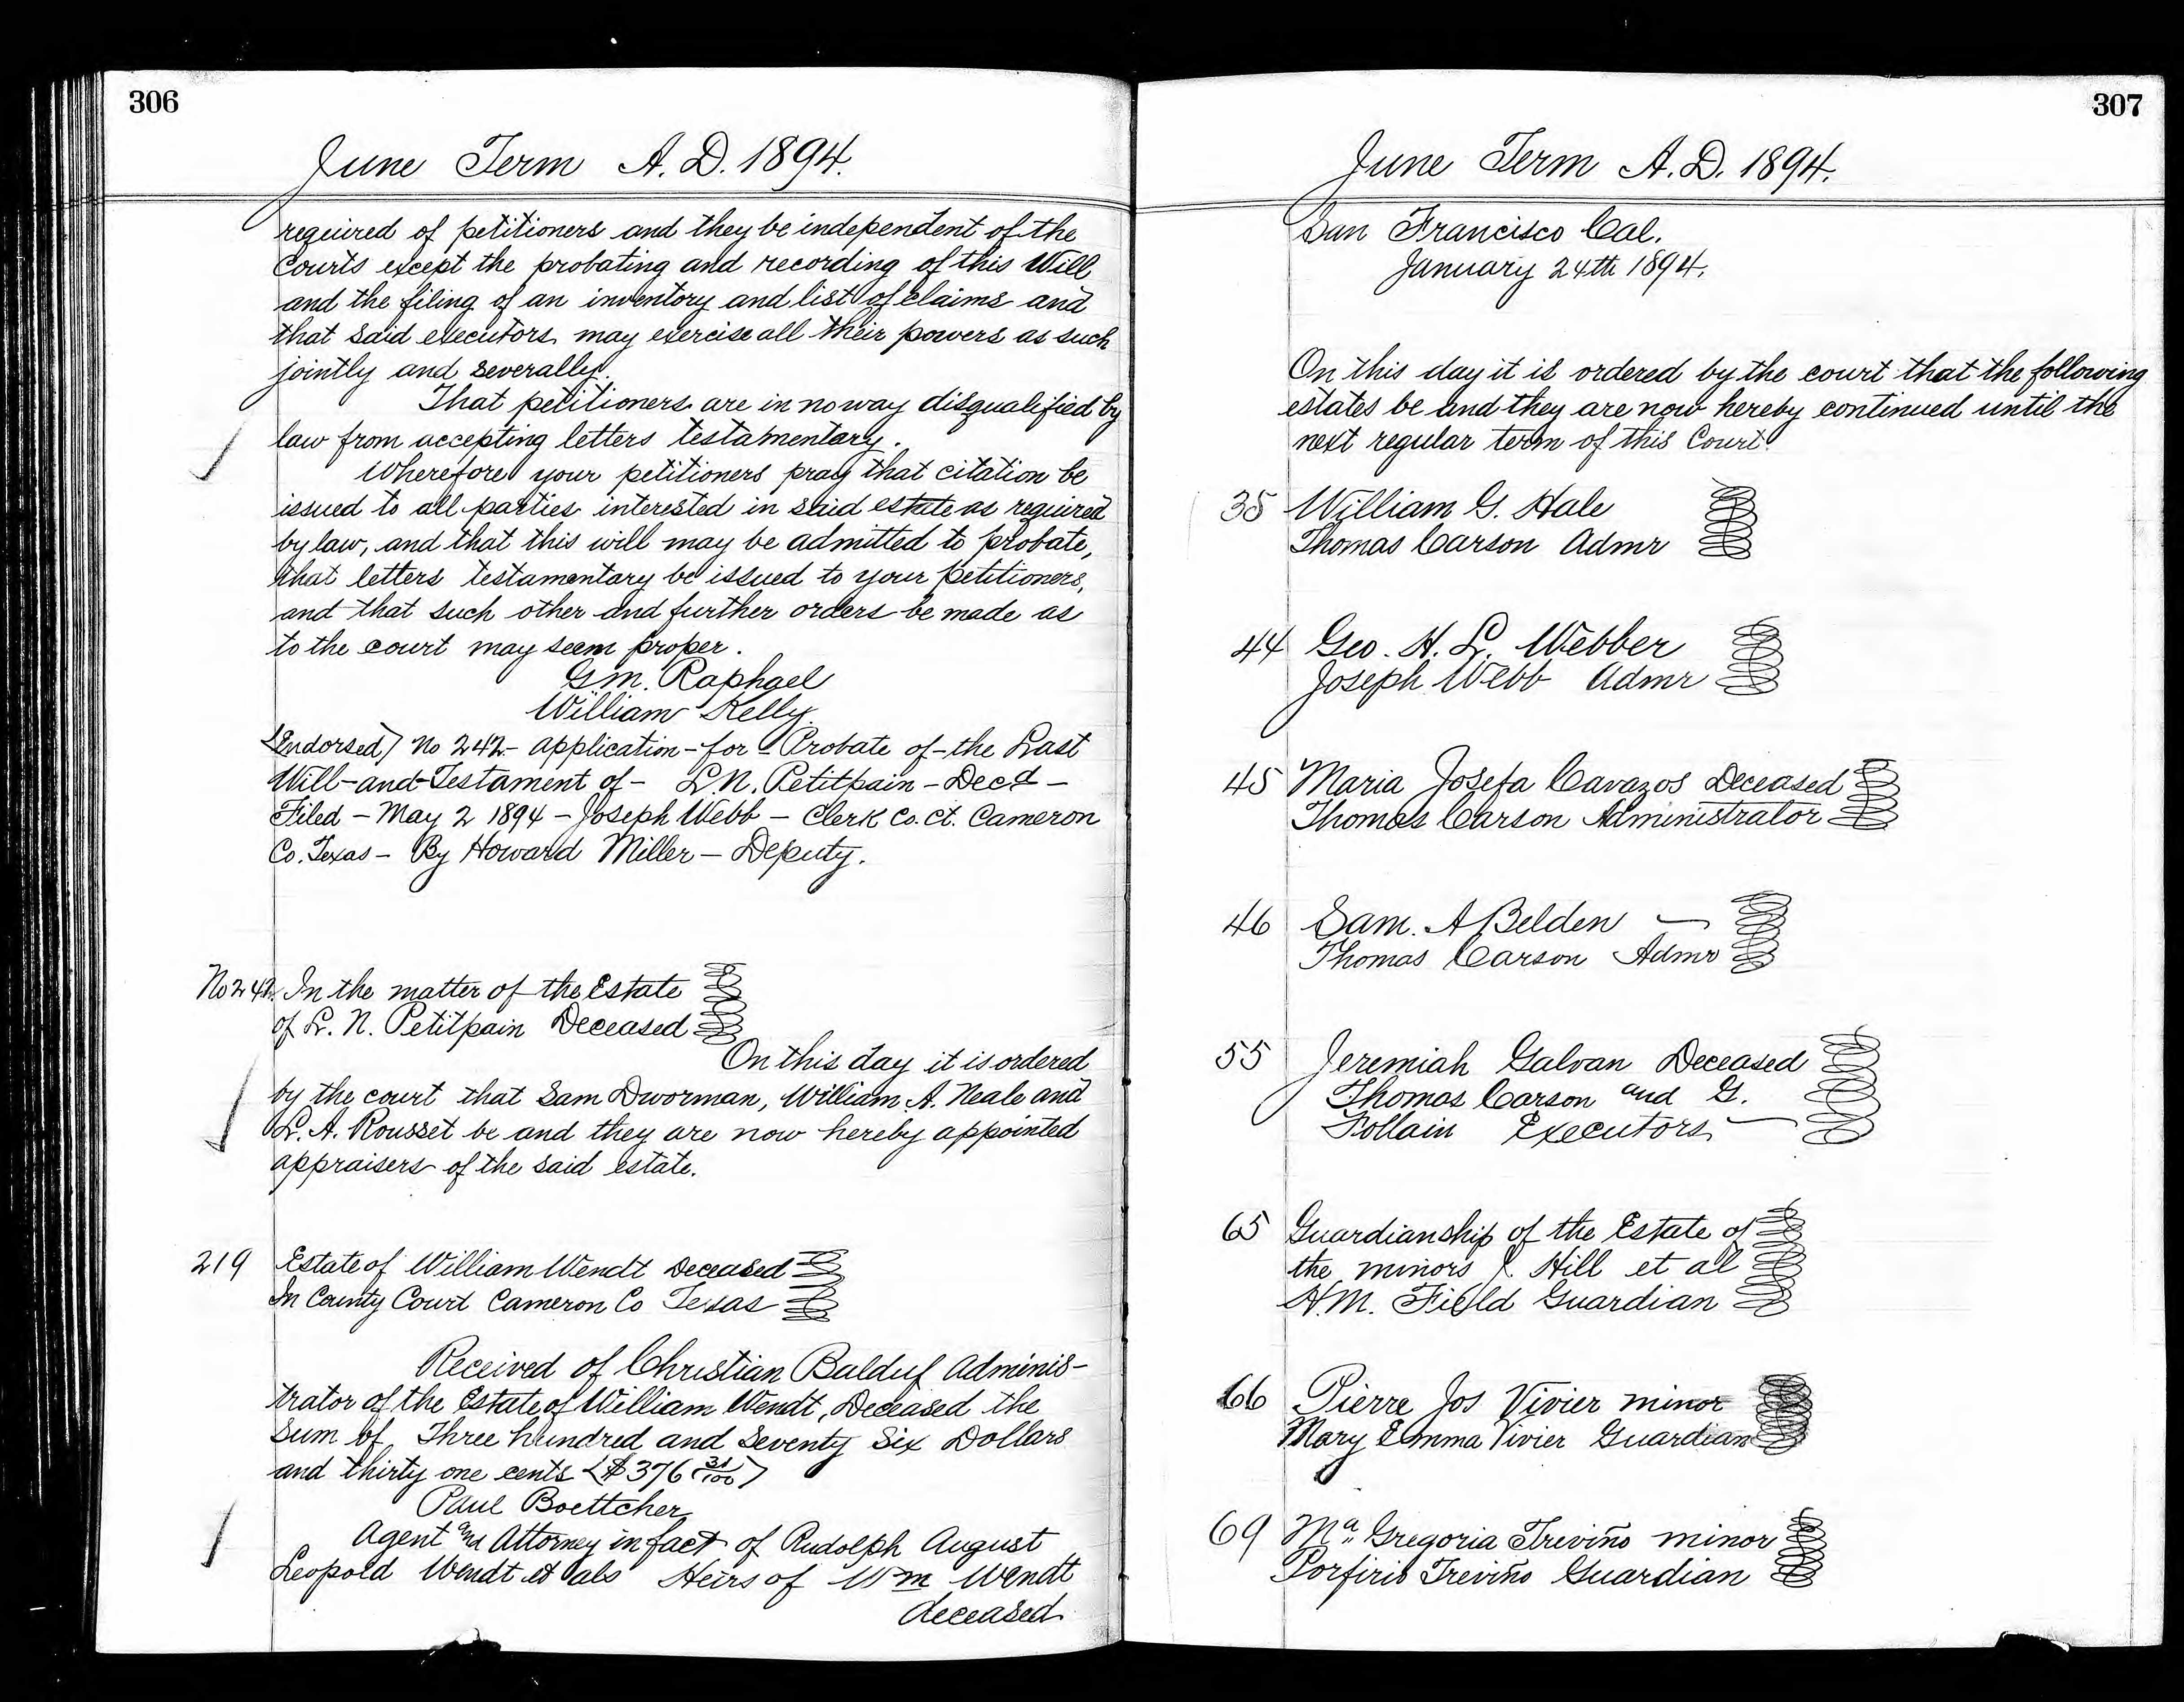 306
June Term A.D. 1894.
required of petitioners and they be independent of the
Courts except the probating and recording of this Will
and the filing of an inventory and list of claims and
that said executors may exercise all their powers as such
jointly and severally.
That petitioners are in no way disqualified by
law from accepting letters testamentary.
Wherefore your petitioners pray that citation be
issued to all parties interested in said estate as required
by law, and that this will may be admitted to probate,
that letters testamentary be issued to your petitioners,
and that such other and further orders be made as
to the court may seem proper.
G.M. Raphael
William Kelly.
(Endorsed) No 242 - application - for - Probate of - the Last
Will - and - Testament of - L.N. Petitpain - Decd -
Filed - May 2 1894 - Joseph Webb - Clerk Co. Ct. Cameron
Co. Texas - By Howard Miller - Deputy.
No 242. In the matter of the Estate
of L. N. Petitpain Deceased
On this day it is ordered
by the court that Sam Dworman, William A. Neale and
L. A. Rousset be and they are now hereby appointed
appraisers of the said estate.
219 Estate of William Wendt Deceased
In County Court Cameron Co Texas
Received of Christian Balduf Adminis-
trator of the Estate of William Wendt, Deceased the
Sum of Three hundred and Seventy Six Dollars
and thirty one cents ($376 31/100)
Paul Boettcher
Agent and Attorney in fact of Rudolph August
Leopold Wendt et als Heirs of Wm Wendt
deceased
307
June Term A.D. 1894.
San Francisco Cal.
January 24th 1894.
On this day it is ordered by the court that the following
estates be and they are now hereby continued until the
next regular term of this Court.
35 William G. Hale
Thomas Carson Admr
44 Geo. H. L. Webber
Joseph Webb Admr
45 Maria Josefa Cavazos Deceased
Thomas Carson Administrator
46 Sam. A Belden
Thomas Carson Admr
55 Jeremiah Galvan Deceased
Thomas Carson and G.
Follain Executors
65 Guardianship of the Estate of
the minors J. Hill et al
H.M. Field Guardian
66 Pierre Jos Vivier minor
Mary Emma Vivier Guardian
69 Ma. Gregoria Treviño minor
Porfirio Treviño Guardian